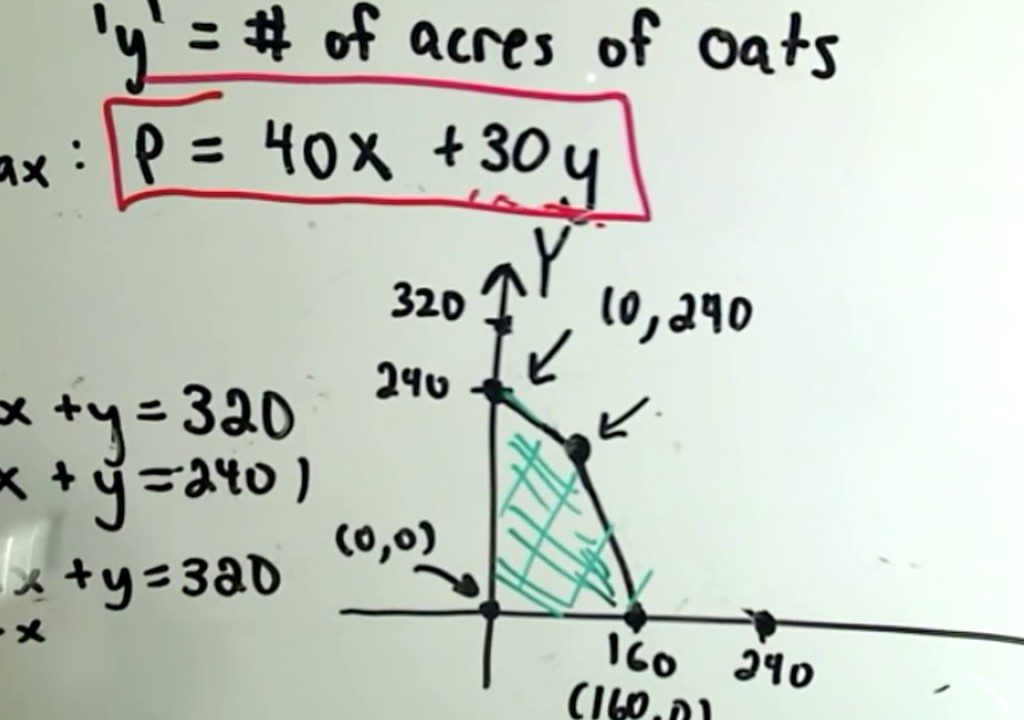 'y' = # of acres of oats
ax: P = 40x + 30y
Y
320
(0, 240
240
x + y = 320
x + y = 240 )
(0,0)
x + y = 320
- x
160
240
(160,0)